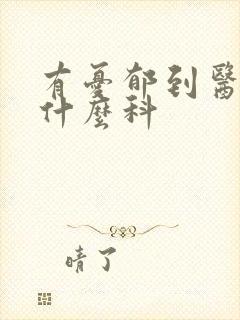 有憂郁到醫
什麼科
晴了